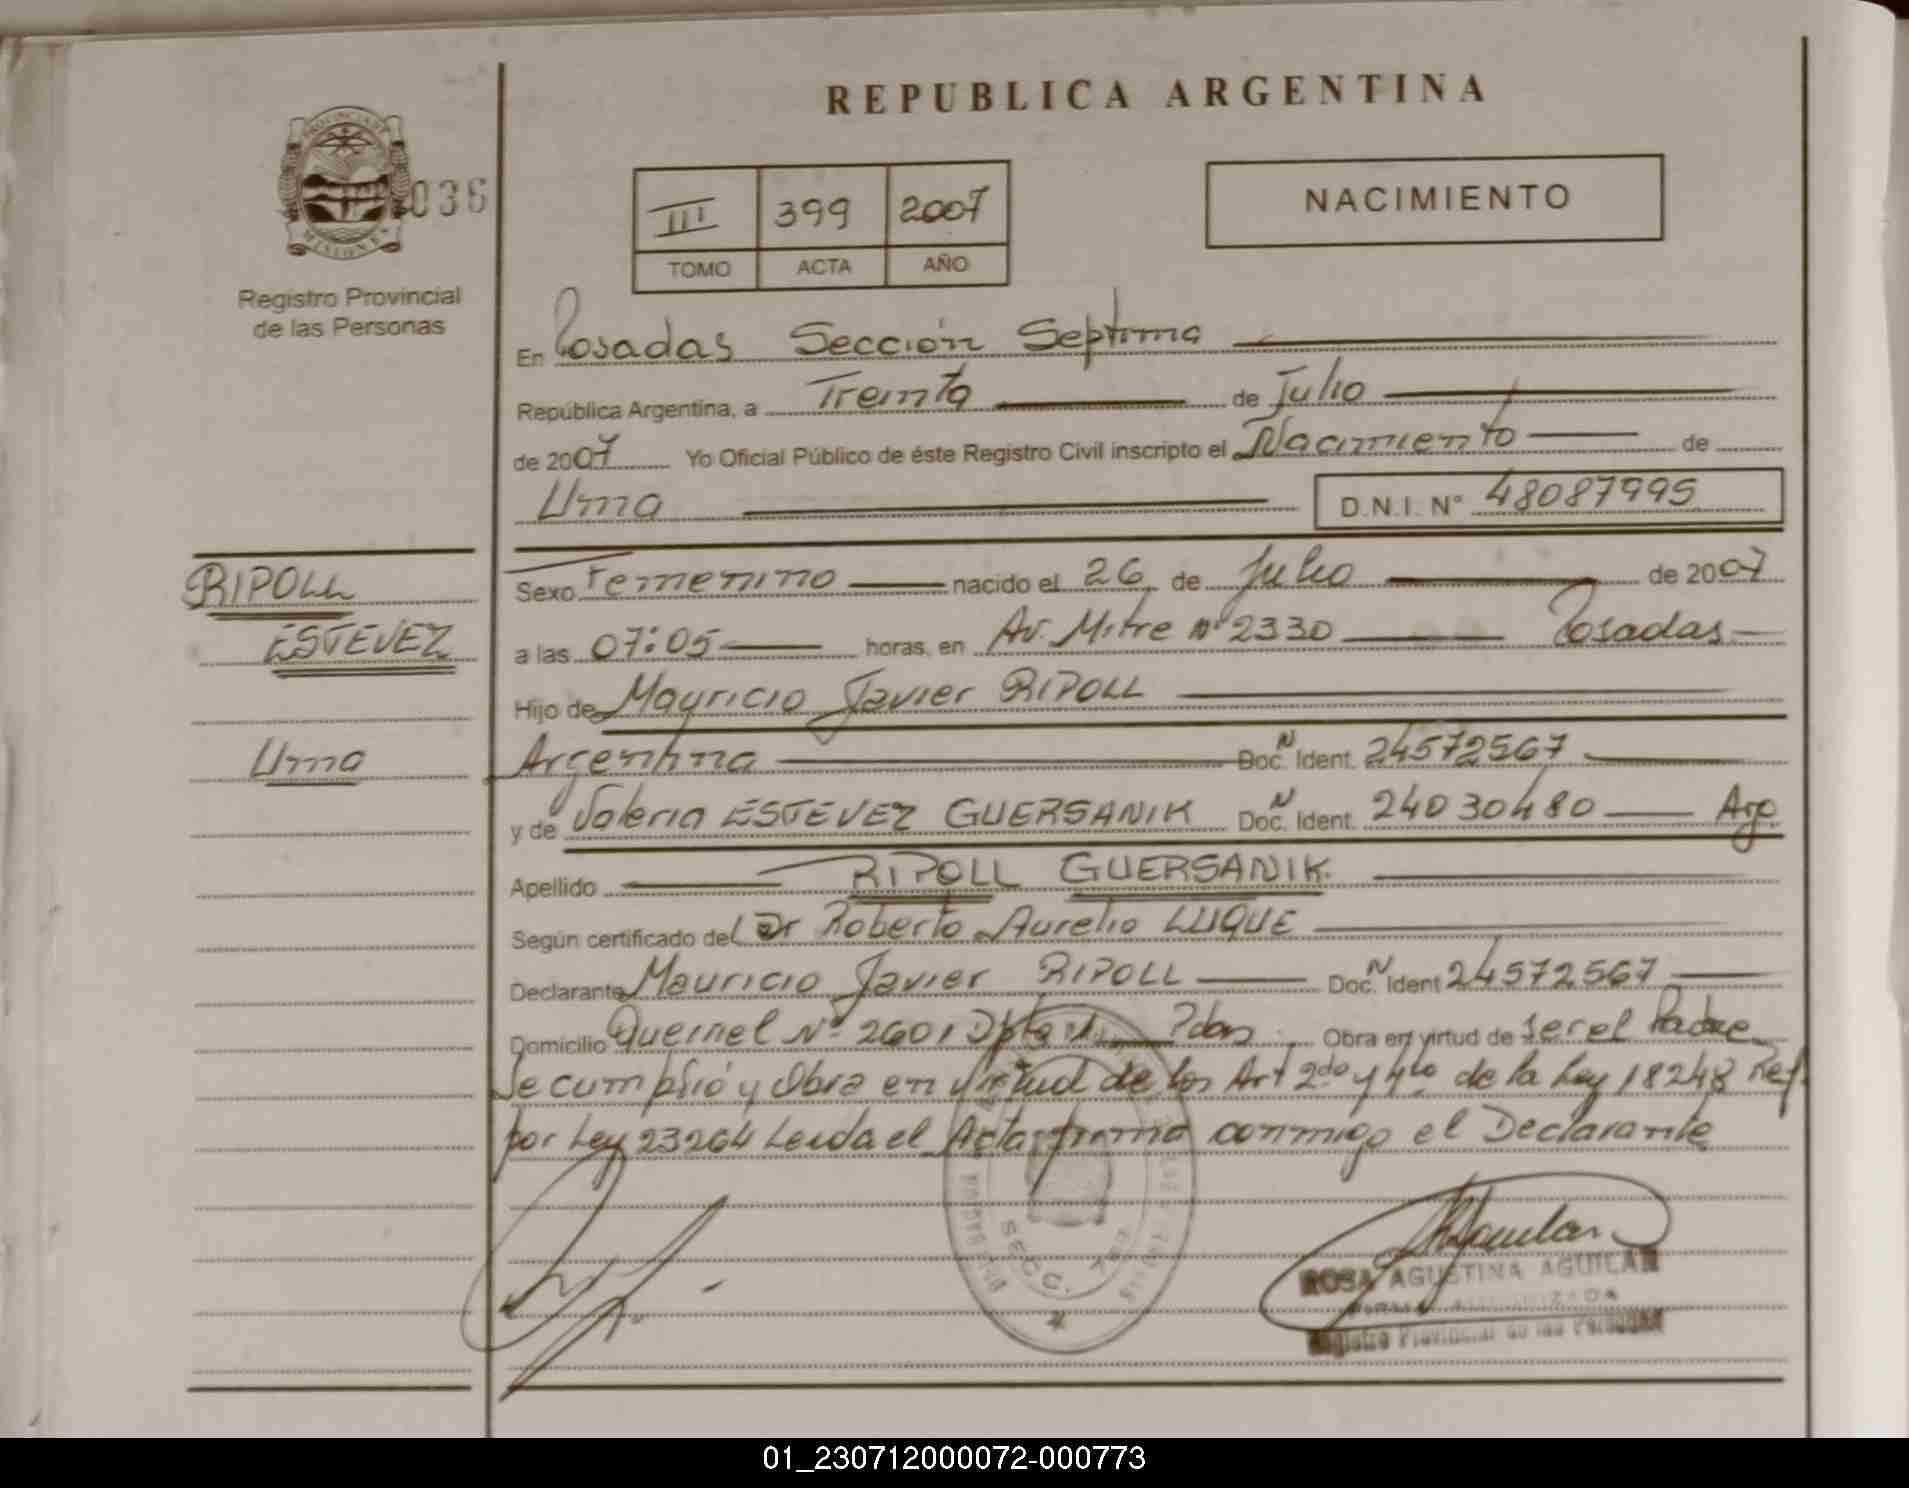 REPUBLICA ARGENTINA
PROVINCIA DE
MISIONES
036
Registro Provincial
de las Personas
III 399 2007
TOMO ACTA AÑO
NACIMIENTO
En Posadas Sección Septima
República Argentina, a Treinta de Julio
de 2007 Yo Oficial Público de éste Registro Civil inscripto el Nacimiento de
Uma D.N.I. N° 48087995
RIPOLL
ESTEVEZ
Uma
Sexo Femenino nacido el 26 de Julio de 2007
a las 07:05 horas, en Av. Mitre N° 2330 Posadas
Hijo de Mauricio Javier RIPOLL
Argentina Doc. N Ident. 24572567
y de Valeria ESTEVEZ GUERSANIK Doc. N Ident. 24030480 Arg.
Apellido RIPOLL GUERSANIK.
Según certificado del Dr Roberto Aurelio LUQUE
Declarante Mauricio Javier RIPOLL Doc. N Ident 24572567
Domicilio N° 2601 Pdas. Obra en virtud de ser el Padre
Se cumplió y Obra en virtud de los Art 2do y 4to de la Ley 18248 Ref.
por Ley 23264 Leida el Acta firma conmigo el Declarante
SECC.
ROSA AGUSTINA AGUILAR
FIRMA AUTORIZADA
Registro Provincial de las Personas
01_230712000072-000773